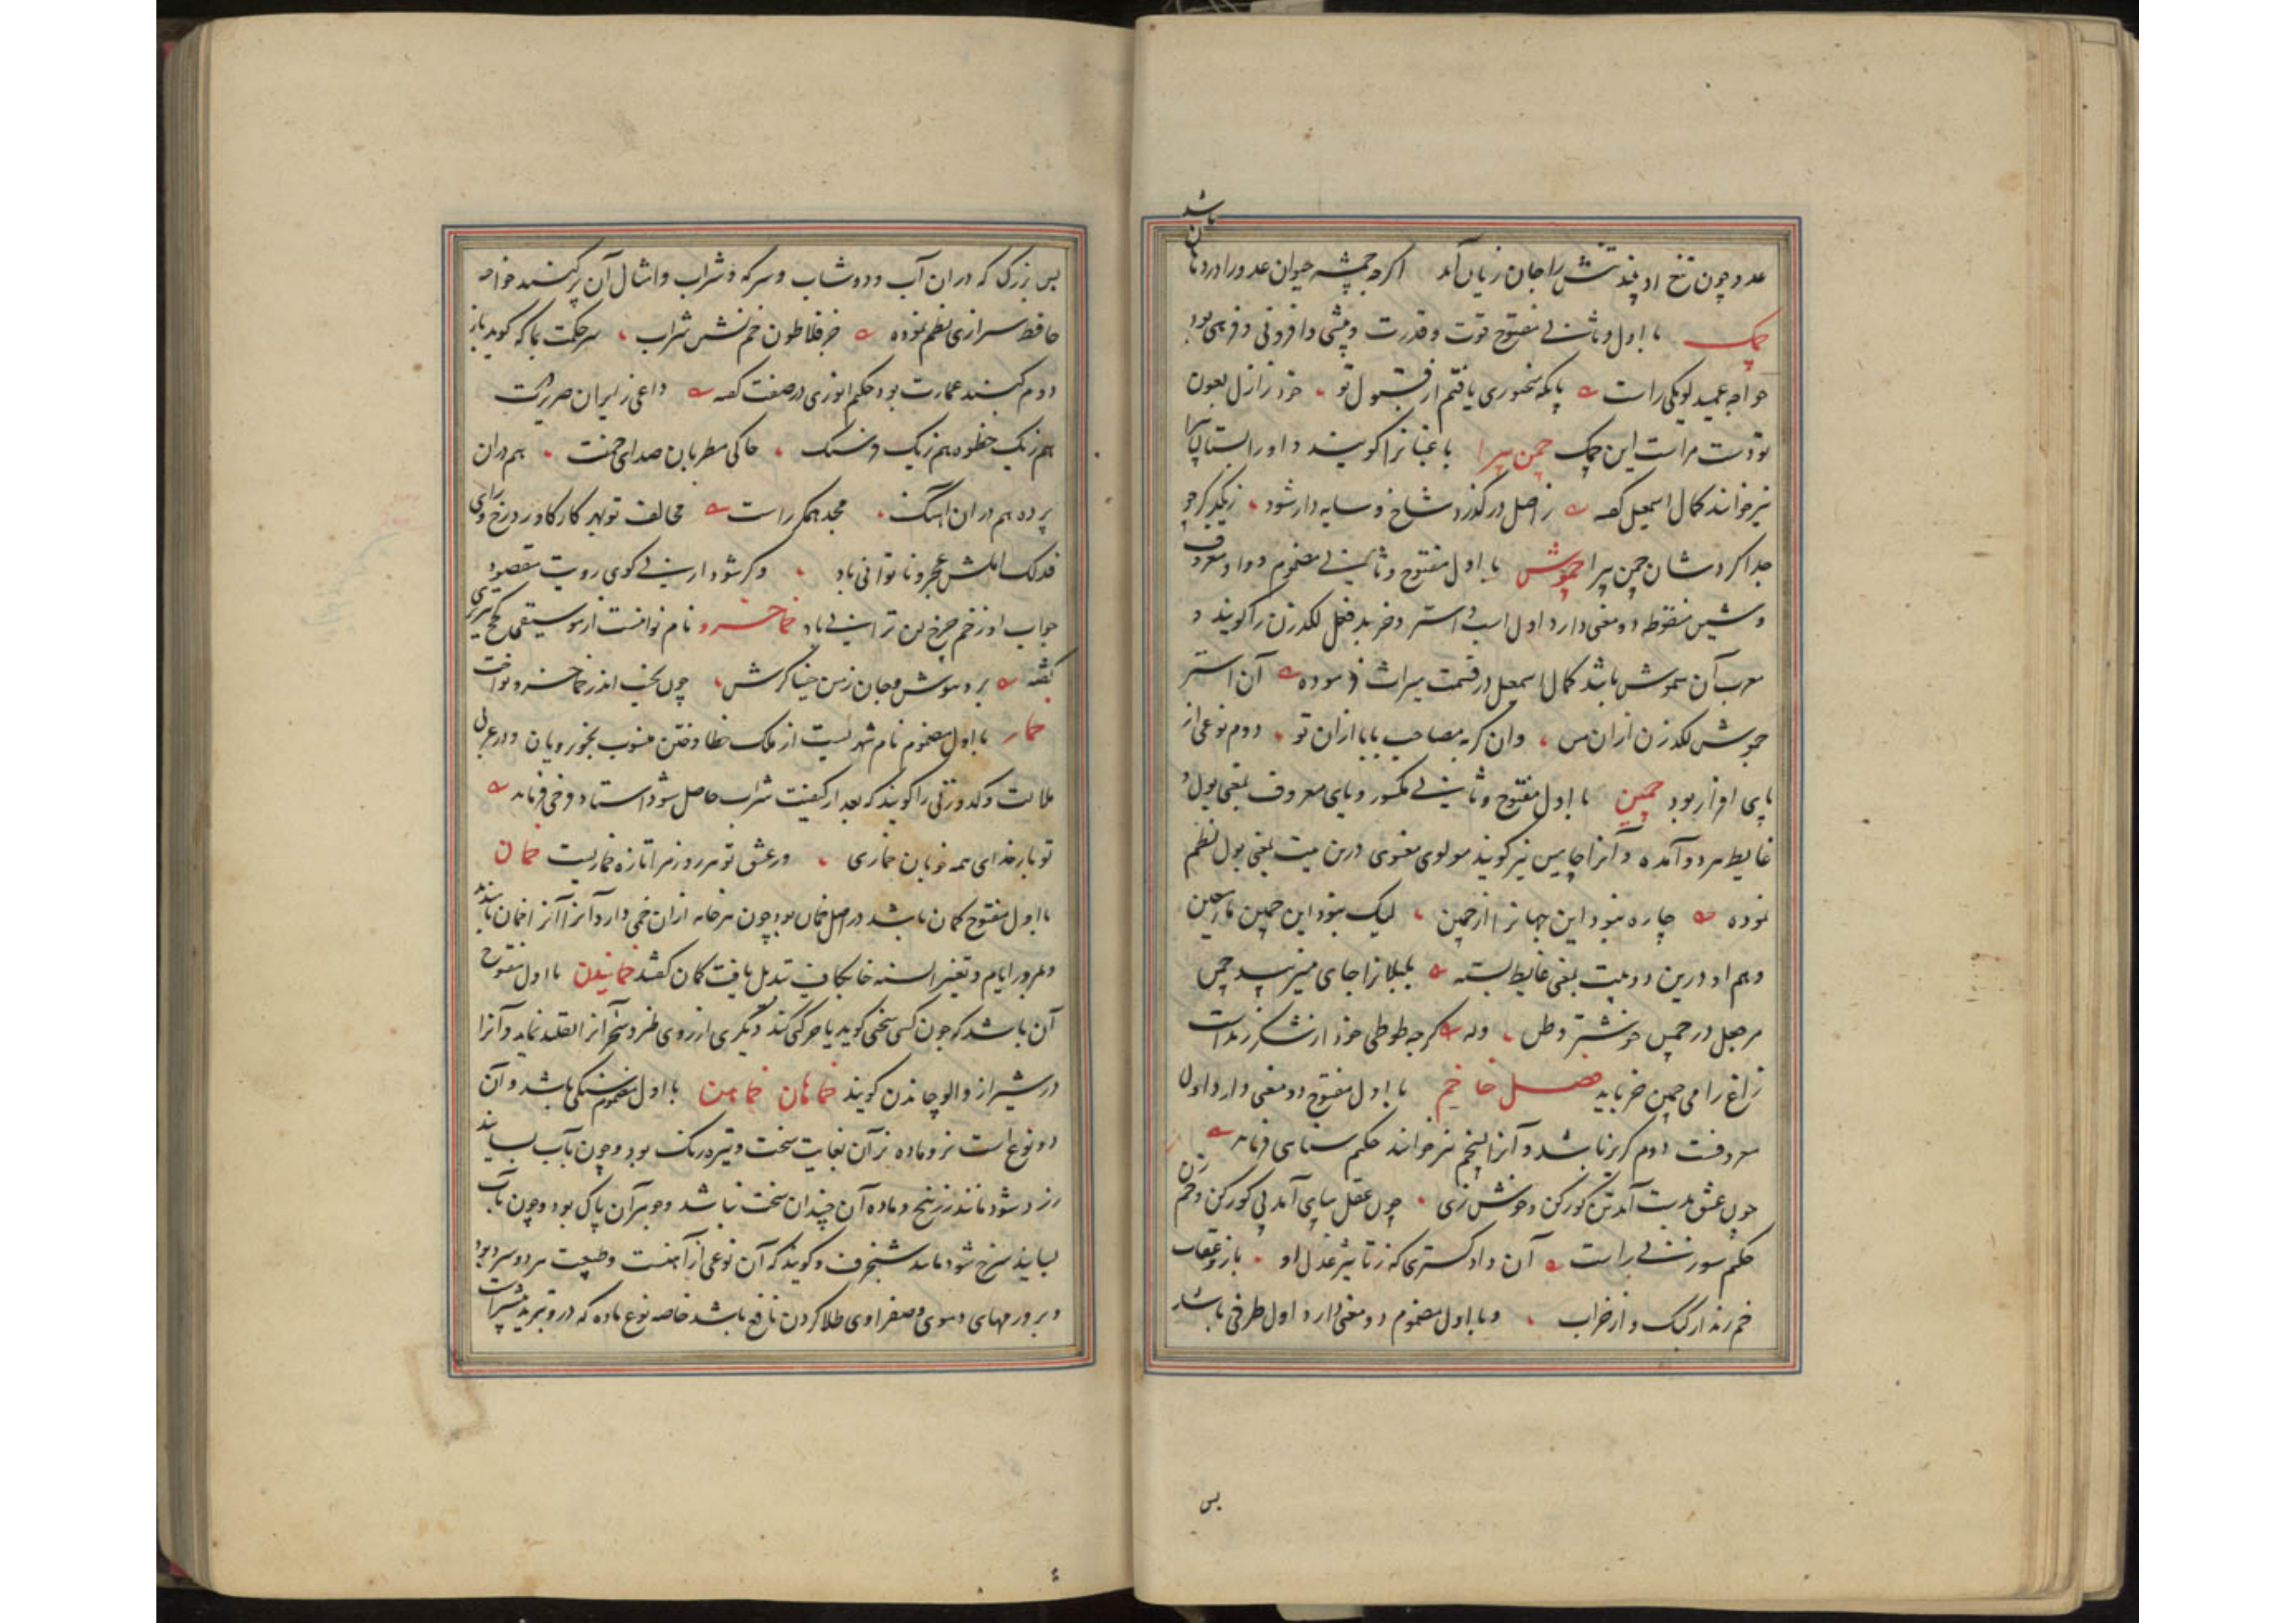 باشد
عدو چون تیغ او بیند تنش را جان زیان آمد اگرچه چشمه حیوان عدو را در دهان
چمک با اول و ثانی مفتوح قوت و قدرت و پیشی و افزونی و فربهی بود
خواجه عمید لویکی راست پایگه سخنوری یافتم از قبول تو خود ز ازل بعون
تو دست مراست این چمک چمن پیرا باغبانرا گویند و او را بستان پیرا
نیز خوانند کمال اسمعیل گفته ز اصل درگذرد شاخ و سایه دار شود ز یکدگر چو
جدا کردشان چمن پیرا چموش با اول مفتوح و ثانی مضموم و واو معروف
و شین منقوطه دو معنی دارد اول اسپ و استر و خر بدفعل لگدزن را گویند و
معرب آن شموش باشد کمال اسمعیل در قسمت میراث فرموده آن استر
چموش لگدزن ازان من وان گربه مصاحب بابا ازان تو دوم نوعی از
پای افزار بود چمین با اول مفتوح و ثانی مکسور و یای معروف بمعنی بول و
غایط هر دو آمده و آنرا چامین نیز گویند مولوی معنوی درین بیت بمعنی بول نظم
نموده چاره نبود این جهانرا از چمین لیک نبود این چمین ماء معین
و هم او درین دو بیت بمعنی غایط بسته بلبلانرا جای میزیبد چمن
مر جعل در چمین خوشتر وطن وله گرچه طوطی خود از شکر زنداست
زاغ را می چمین خر باید فصل خا خم با اول مفتوح دو معنی دارد اول
معروفست دوم گریز باشد و آنرا پخم نیز خوانند حکیم سنائی فرماید
چون عشق بدست آمد تن گور کن و خوش زی چون عقل بپای آمد پی گور کن و خم زن
حکیم سوزنی راست آن دادگستری که ز تاثیر عدل او باز و عقاب
خم زند از کبک و از غراب و با اول مضموم دو معنی دارد اول ظرفی باشد
بس
بس بزرگ که دران آب و دوشاب و سرکه و شراب و امثال آن پر کنند خواجه
حافظ شیرازی نظم نموده جز فلاطون خم نشین شراب سر حکمت بما که گوید باز
دوم گنبد عمارت بود حکیم انوری در صفت گفته داعی زایران صریرت
هم زنگ خطوه هم زنگ درنگ حاکی مطربان صدای خمت هم دران
پرده هم دران آهنگ مجد همگر راست مخالف تو بهر کار کاورد رخ و رای
فذلک املش عجز و ناتوانی باد وگر شود ارنی گوی رویت مقصود
جواب او ز خم چرخ لن ترانی باد خما خسرو نام نوائیست از موسیقی
گفته برد هوش و جان زمن خیناگرش چون بخم اندر خما خسرو نواخت
خمار با اول مضموم نام شهریست از ملک خطا و ختن منسوب بخوبرویان و در عربی
ملالت و کدورتی را گویند که بعد از کیفیت شراب حاصل شود استاد فرخی فرماید
تو بارخدای همه خوبان خماری در عشق تو هر روز مرا تازه خماریست خمان
با اول مفتوح کمان باشد در اصل خمان بود چون هر خانه ازان خمی دارد آنرا خمان نامیدند
و بمرور ایام و تغییر السنه خا بکاف تبدیل یافت کمان گفتند خمانیدن با اول مفتوح
آن باشد که چون کسی سخنی گوید یا حرکتی کند دیگری از روی طنز و سخر آنرا تقلید نماید و آنرا
در شیراز والوچانیدن گویند خماهان خماهن با اول مضموم سنگی باشد و آن
دو نوع است نر و ماده نر آن بغایت سخت و تیره رنگ بود و چون بآب بسایند
زرد شود مانند زرنیخ و ماده آن چندان سخت نباشد و جوهر آن پاک بود و چون بآب
بسایند سرخ شود مانند شنجرف و گویند که آن نوعی از آهنست و طبیعت هر دو سرد بود
و بر ورمهای دموی و صفراوی طلا کردن نافع باشد خاصه نوع ماده که درو تبرید بیشتر است